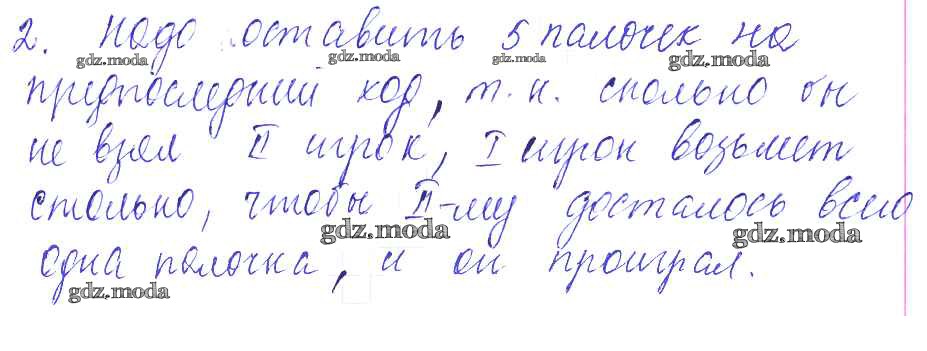 2. Надо оставить 5 палочек на
gdz.moda gdz.moda gdz.moda gdz.moda
предпоследний ход, т.к. сколько бы
не взял II игрок, I игрок возьмет
столько, чтобы II-му досталось всего
gdz.moda gdz.moda
одна палочка, и он проиграл.
gdz.moda